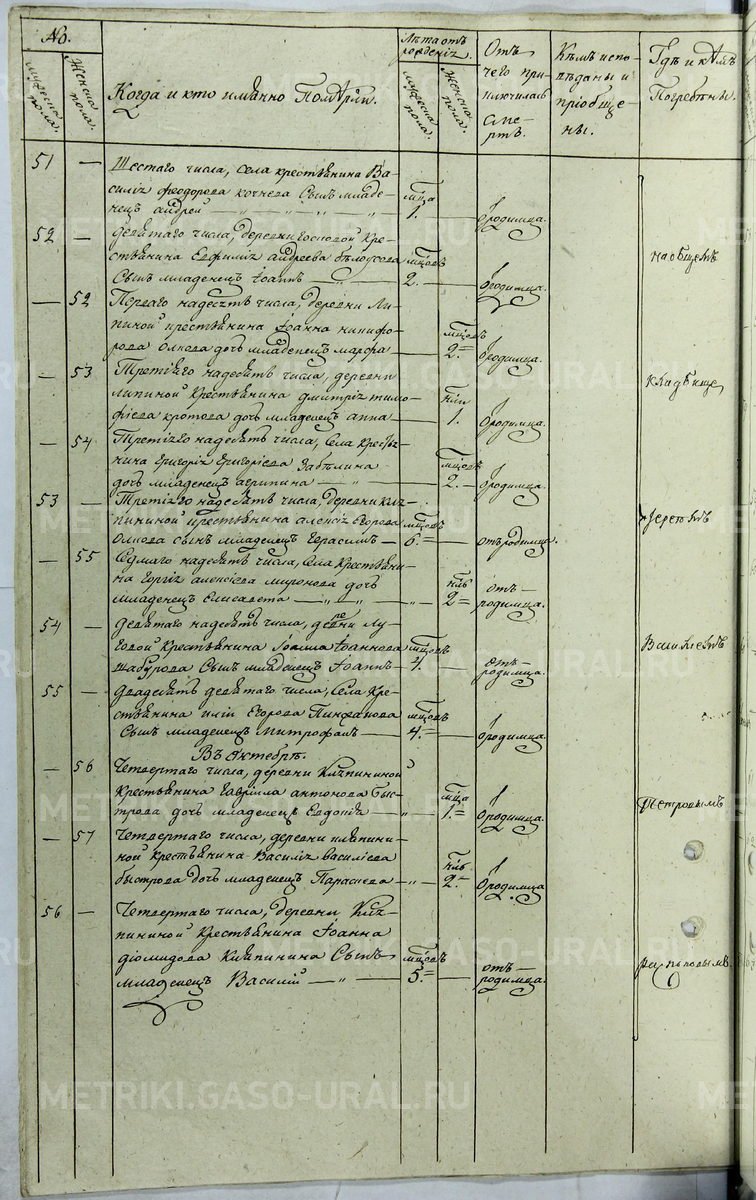 №.
мужеска пола.
Женска пола.
Когда и кто имянно Помѣрли.
Лѣта отъ рожденія.
мужеска пола.
Женска пола.
Отъ
чего при
ключилась
сме
рть.
Кѣмъ испо
вѣданы и
пріобще
ны.
Гдѣ и кѣмъ
Погребѣны.
51 —
Шестаго числа, села крестьянина Ва-
силія феодорова кочнева Сынъ младе-
нецъ андрей
мца 1.
ѿ родимца.
52 —
девятаго числа, деревни Крe-
стьянина Евфимія андреева бѣлоусова
Сынъ младенецъ Іоаннъ
мцовъ 2.
ѿ родимца.
— 52
Перваго надесять числа, деревни Ли-
пиной крестьянина Іоанна никифо-
рова дочь младенецъ марфа
мцовъ 2
ѿ родимца.
— 53
Третіяго надесять числа, деревни
липиной Крестьянина дмитрія тимо-
фіева кротова дочь младенецъ анна
1.
ѿ родимца.
— 54
Третіяго надесять числа, Села Крестья-
нина Григорія Григоріева Забѣлина
дочь младенецъ агрипина
мцовъ 2.
ѿ родимца.
53 —
Третіяго надесять числа, деревни Кля-
пининой крестьянина алексія Егорова
сынъ младенецъ Герасимъ
мцовъ 6
отъ родимца.
— 55
Седмаго надесять числа, Села Крестьяни-
на Георгія алексіева миронова дочь
младенецъ Елисавета
нлъ 2
отъ
родимца.
54 —
девятаго надесять числа, деревни Лу-
говой Крестьянина Іоанна Іоаннова
шабурова Сынъ младенецъ Іоаннъ
мцовъ 4.
отъ
родимца.
55 —
двадесять девятаго числа, Села Кре-
стьянина иліи Егорова Панфилова
Сынъ младенецъ Митрофанъ
мцовъ 4.
ѿ родимца.
Въ октябрѣ.
— 56
Четвертаго числа, деревни Кляпининой
Крестьянина Гавріила антонова Быс-
трова дочь младенецъ Евдокія
мца 1.
ѿ родимца.
— 57
Четвертаго числа, деревни кляпини-
ной крестьянина Василія василіева
быстрова дочь младенецъ Параскева
нлъ 2.
ѿ родимца
56 —
Четвертаго числа, деревни Кля-
пининой Крестьянина Іоанна
діомидова Кляпинина Сынъ
младенецъ Василій
мцовъ 5.
отъ
родимца.
на общемъ
кладбище,
Іереемъ
Василіемъ
Петровымъ
METRIKI.GASO-URAL.RU